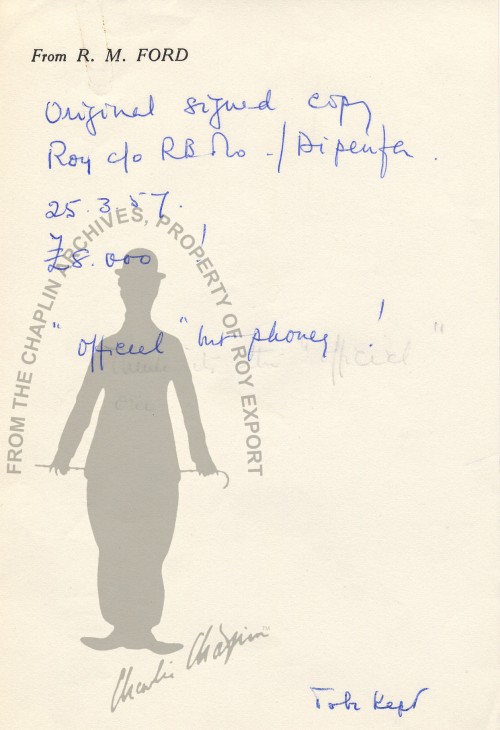 From R. M. FORD
Original signed copy
Roy c/o RB
25.3.57.
£8.000 !
"official" but phoney !
FROM THE CHAPLIN ARCHIVES, PROPERTY OF ROY EXPORT
Charlie Chaplin
To be Kept